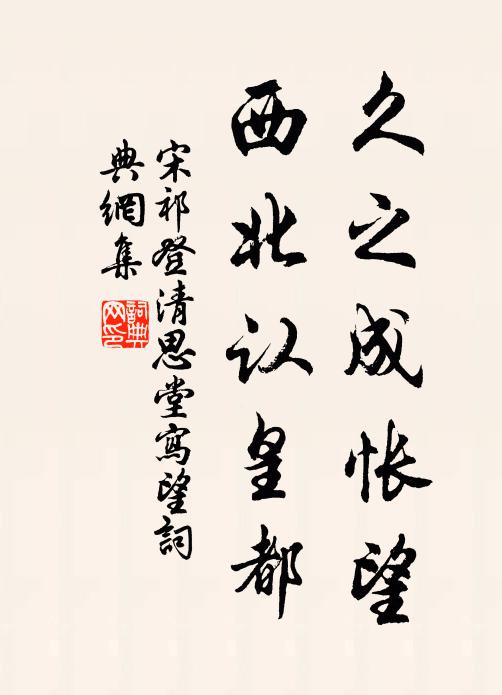 久之成怅望
西北认皇都
宋祁登清思堂寫望詞
典網集
詞典網印